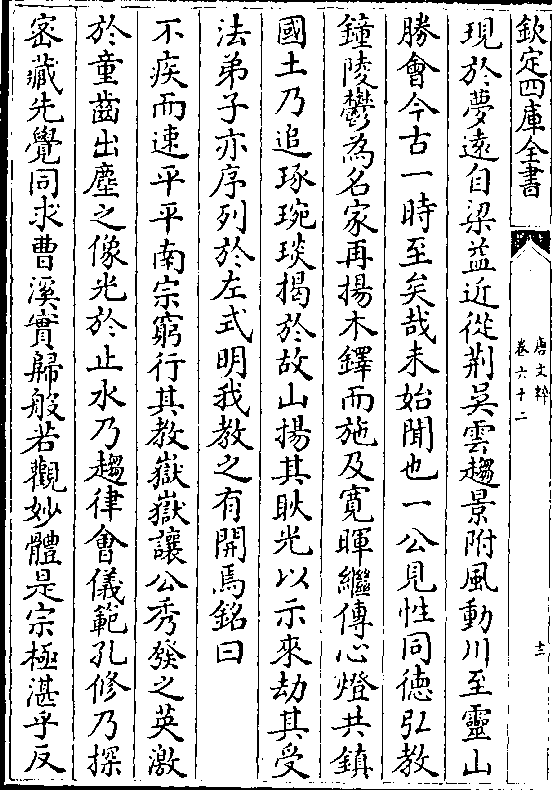 欽定四庫全書
唐文粹
卷六十二
十三
現於夢遠自梁益近從荆吳雲趨景附風動川至靈山
勝會今古一時至矣哉未始聞也一公見性同德弘教
鐘陵鬱為名家再揚木鐸而施及寛暉繼傳心燈共鎮
國土乃追琢琬琰揭於故山揚其耿光以示來劫其受
法弟子亦序列於左式明我教之有開焉銘曰
不疾而速平平南宗窮行其教嶽嶽讓公秀發之英激
於童齒出塵之像光於止水乃趨律會儀範孔修乃探
密藏先覺同求曹溪實歸般若觀妙體是宗極湛乎反